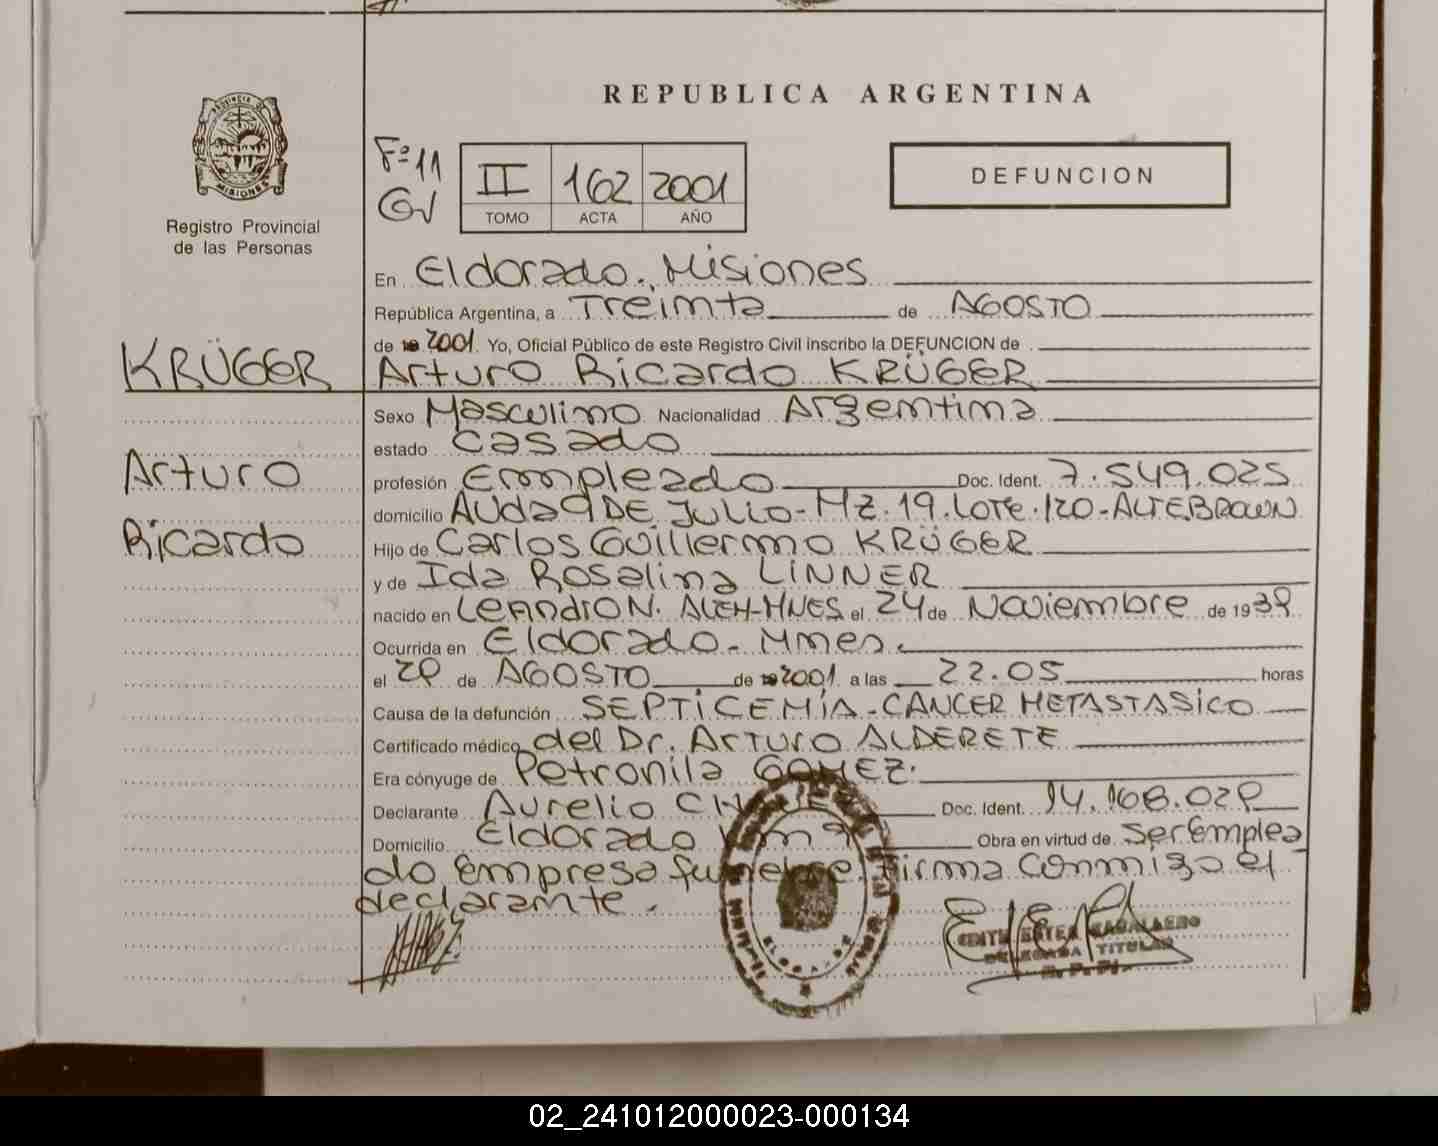 REPUBLICA ARGENTINA
PROVINCIA DE
MISIONES
Registro Provincial
de las Personas
Fº 11
II 162 2001
TOMO ACTA AÑO
DEFUNCION
En Eldorado. Misiones
República Argentina, a Treinta de AGOSTO
de 2001. Yo, Oficial Público de este Registro Civil inscribo la DEFUNCION de
KRÜGER Arturo Ricardo KRÜGER
Sexo Masculino Nacionalidad Argentina
estado casado
Arturo profesión Empleado Doc. Ident. 7.549.025
domicilio AVda 9 DE JULIO-MZ.19.Lote.120-ALTE.BROWN
Ricardo Hijo de Carlos Guillermo KRÜGER
y de Ida Rosalina LINNER
nacido en LeandroN. ALEM-MNES el 24 de Noviembre de 1939
Ocurrida en Eldorado-Mnes.
el 29 de AGOSTO de 2001 a las 22.05 horas
Causa de la defunción SEPTICEMÍA-CANCER METASTASICO
Certificado médico del Dr. Arturo ALDERETE
Era cónyuge de Petronila GOMEZ.
Declarante Aurelio Doc. Ident. 14.168.029
Domicilio Eldorado Km 9 Obra en virtud de Ser Emplea
do Empresa funebre. Firma conmigo el
declarante.
CABALLERO
DELEGADA TITULAR
02_241012000023-000134